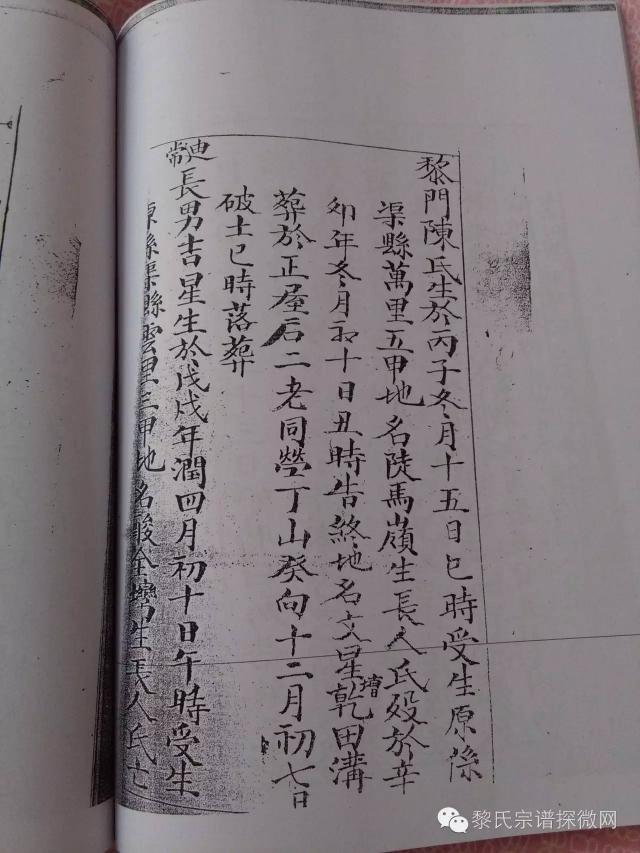 黎門陳氏生於丙子冬月十五日巳時受生原係
渠縣萬里五甲地名陡馬嶺生長人氏殁於辛
卯年冬月初十日丑時告終地名文星乾田溝
壋
葬於正屋后二老同塋丁山癸向十二月初七日
破土巳時落葬
迪常
長男吉星生於戊戌年潤四月初十日午時受生
原係渠縣雲里三甲地名殷全灣生長人氏亡
黎氏宗谱探微网